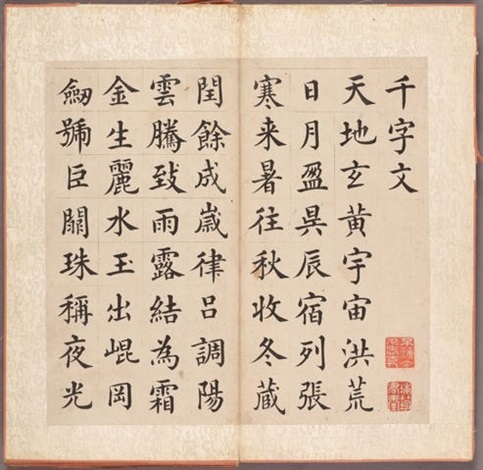 千字文
天地玄黃宇宙洪荒
日月盈昃辰宿列張
寒来暑往秋收冬蔵
閏餘成歲律吕調陽
雲騰致雨露結為霜
金生麗水玉出崐岡
劒號巨闕珠稱夜光